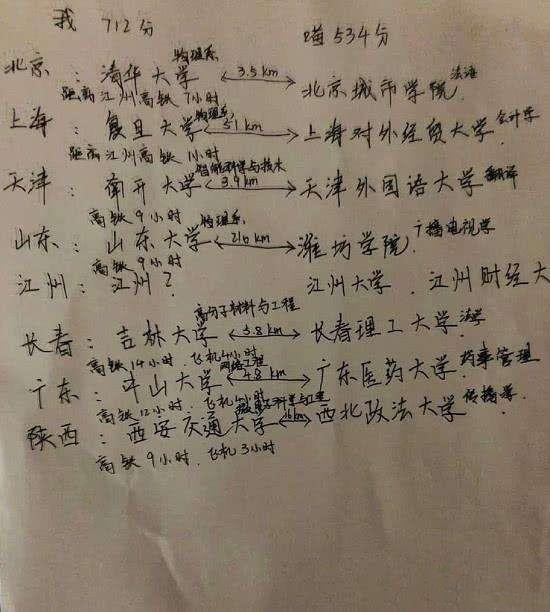 我 712分 喵534分
物理系
北京：清华大学 3.5km 北京城市学院 法语
距离江州高铁7小时
物理系
上海：复旦大学 5.1km 上海对外经贸大学 会计学
距离江州高铁1小时
智能科学与技术
天津：南开大学 3.9km 天津外国语大学 翻译
高铁9小时
物理系
山东：山东大学 216km 潍坊学院 广播电视学
高铁9小时
江州：江州？ 江州大学．江州财经大
高分子材料与工程
长春：吉林大学 5.8km 长春理工大学 法学
高铁14小时．飞机4小时
网络工程
广东：中山大学 4.8km 广东医药大学 药事管理
高铁12小时．飞机4小时
陕西：西安交通大学 16km 西北政法大学 传播学
高铁9小时．飞机3小时